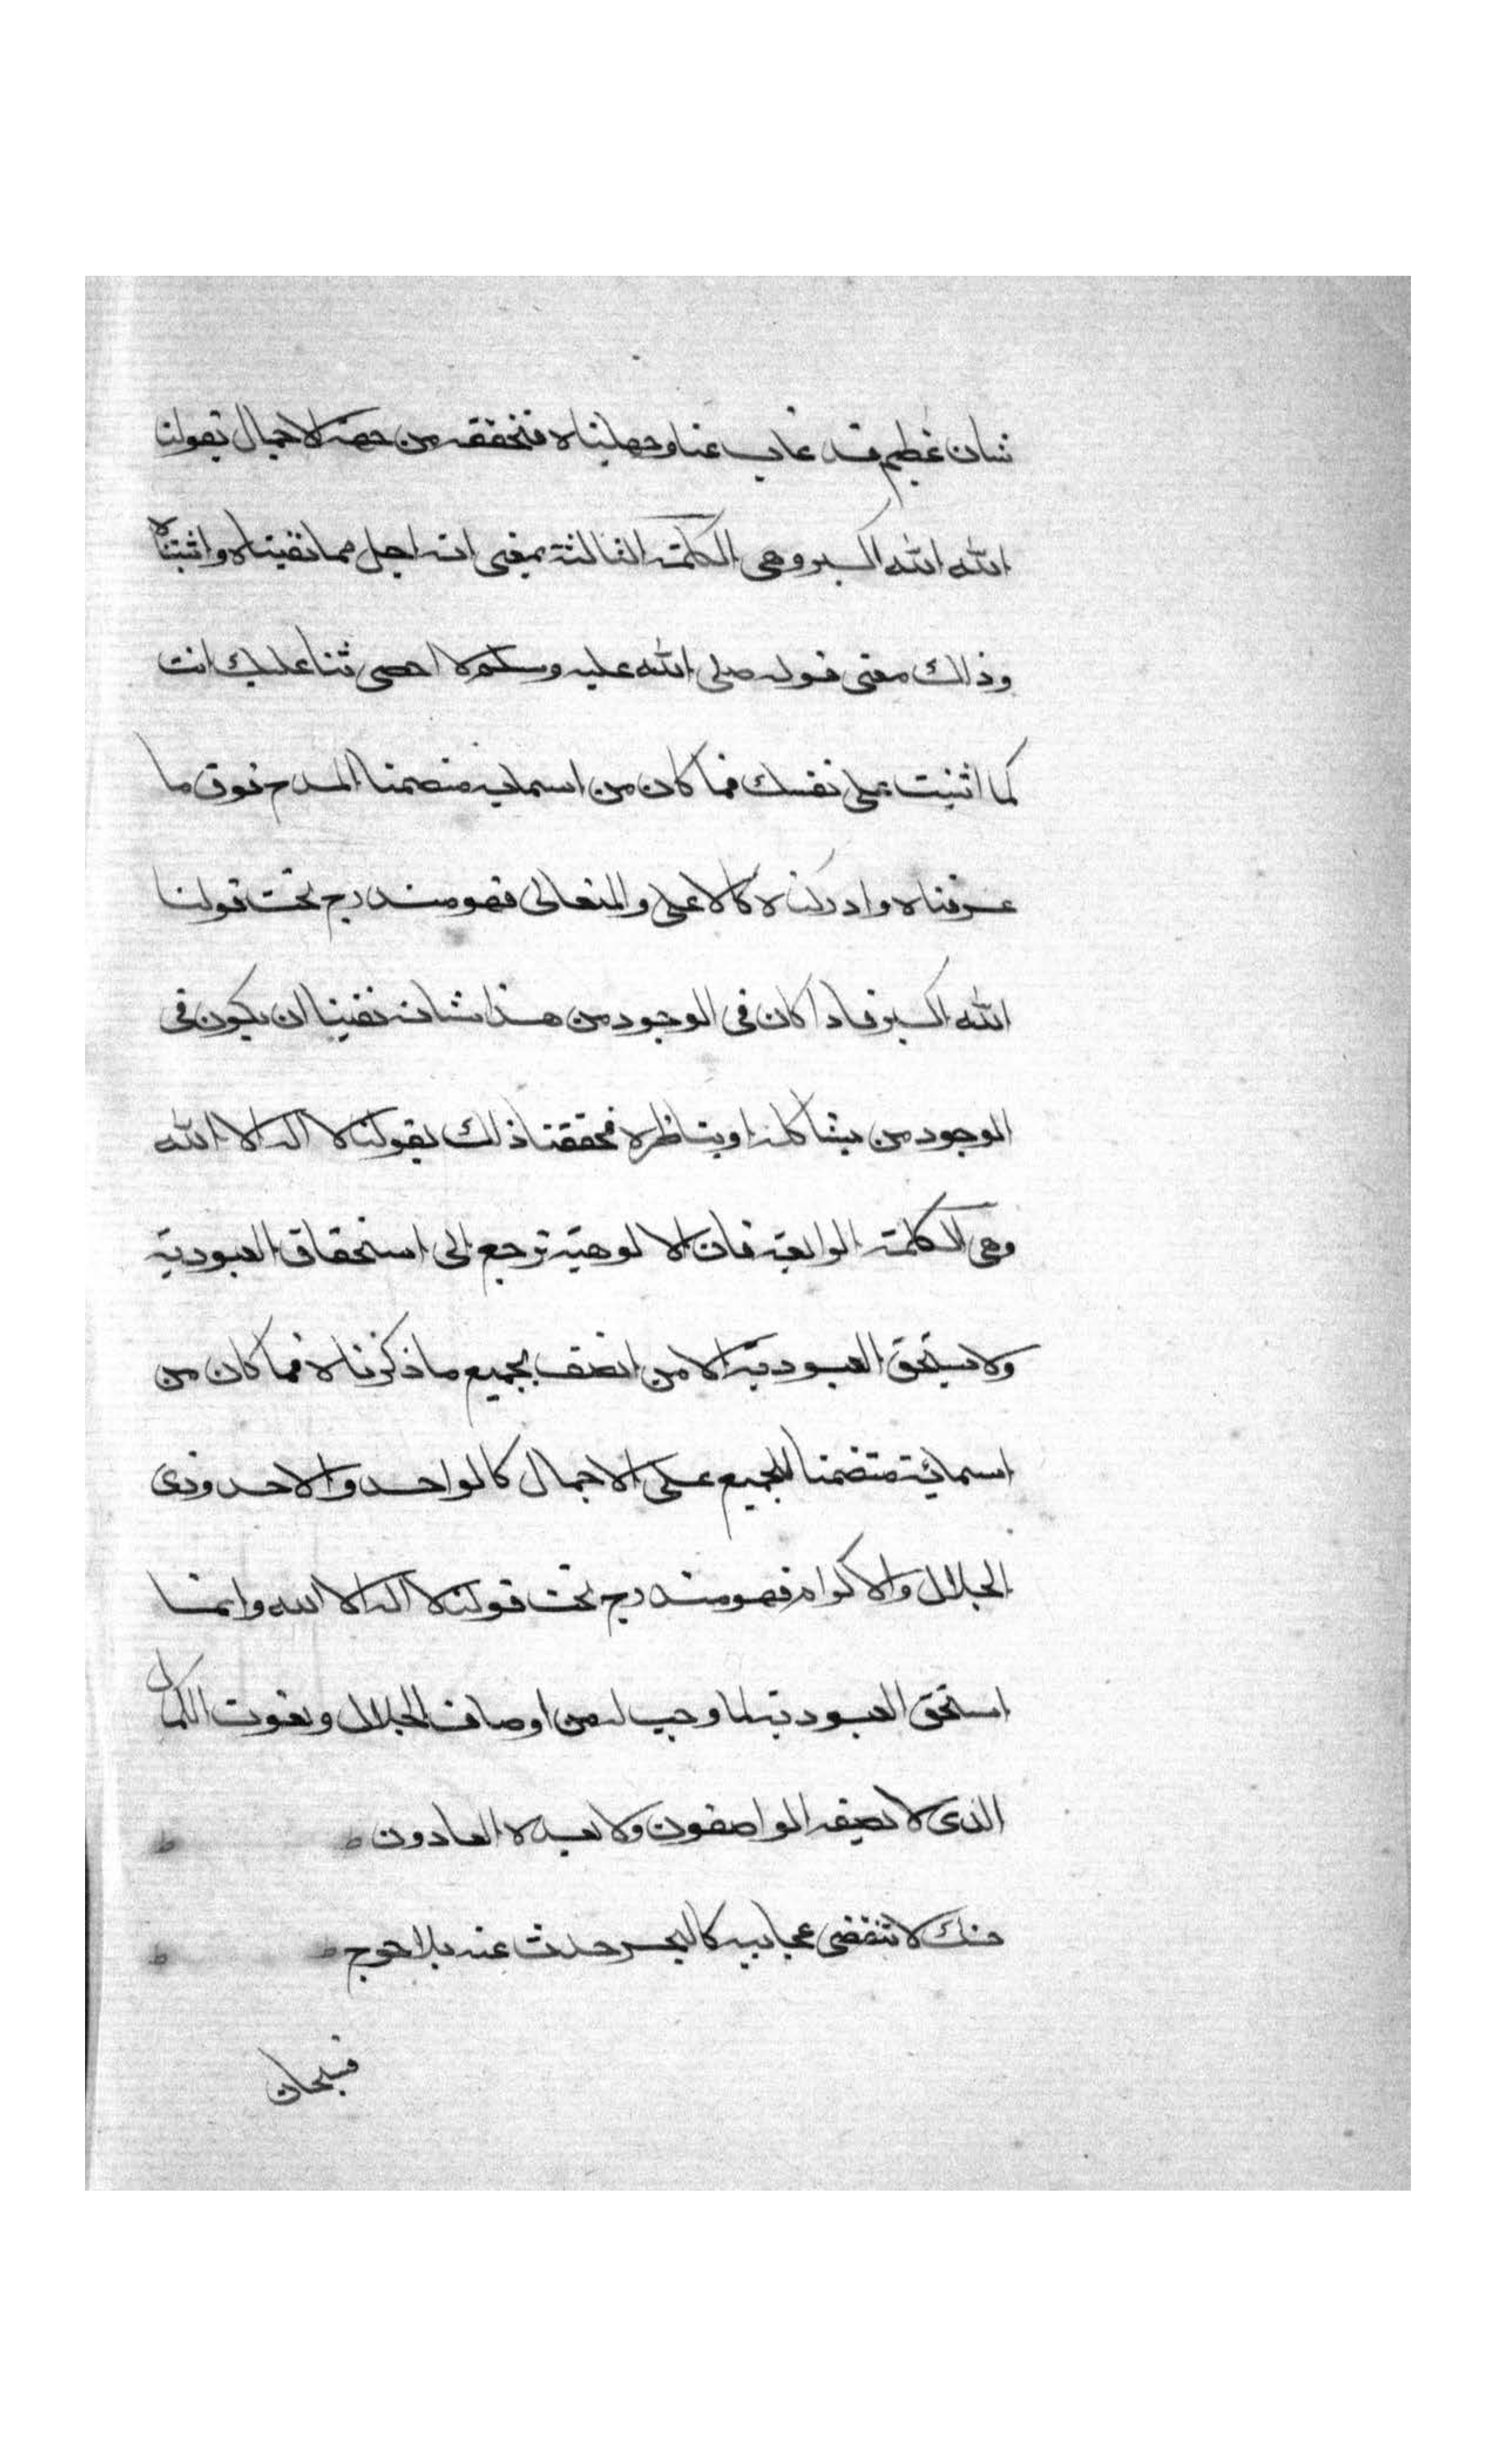 شان عظيم قد غاب عنا وجهلناه فنحققه من جهة الاجمال بقولنا
الله الله اكبر وهي الكلمة الثالثة بمعنى انه اجل مما نفيناه واثبتناه
وذلك معنى قوله صلى الله عليه وسلم لا احصى ثنا عليك انت
كما اثنيت على نفسك فما كان من اسمايه متضمنا المدح فوق ما
عرفناه وادركناه كالاعلى والمتعالى فهو مندرج تحت قولنا
الله اكبر فاذا كان في الوجود من هذا شانه نفينا ان يكون في
الوجود من يشاكله او يناظره فحققنا ذلك بقولنا لا اله الا الله
وهي الكلمة الرابعة فان الالوهية ترجع الى استحقاق العبودية
ولا يستحق العبودية الا من اتصف بجميع ما ذكرناه فما كان من
اسمائية متضمنا للجميع على الاجمال كالواحد والاحد وذى
الجلال والاكرام فهو مندرج تحت قولنا لا اله الا الله وانما
استحق العبودية لما وجب له من اوصاف الجلال ونعوت الكمال
الذى لا يصفه الواصفون ولا يعده العادون
حسنك لا تنقضى عجايبه كالبحر حدث عنه بلا حرج
فسبحان